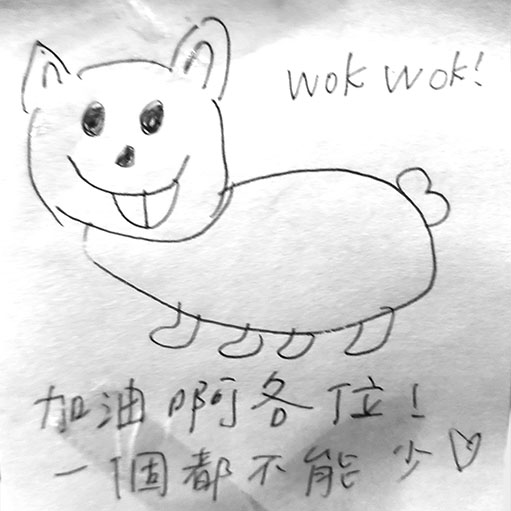 wok wok!
加油啊各位!
一個都不能少♡